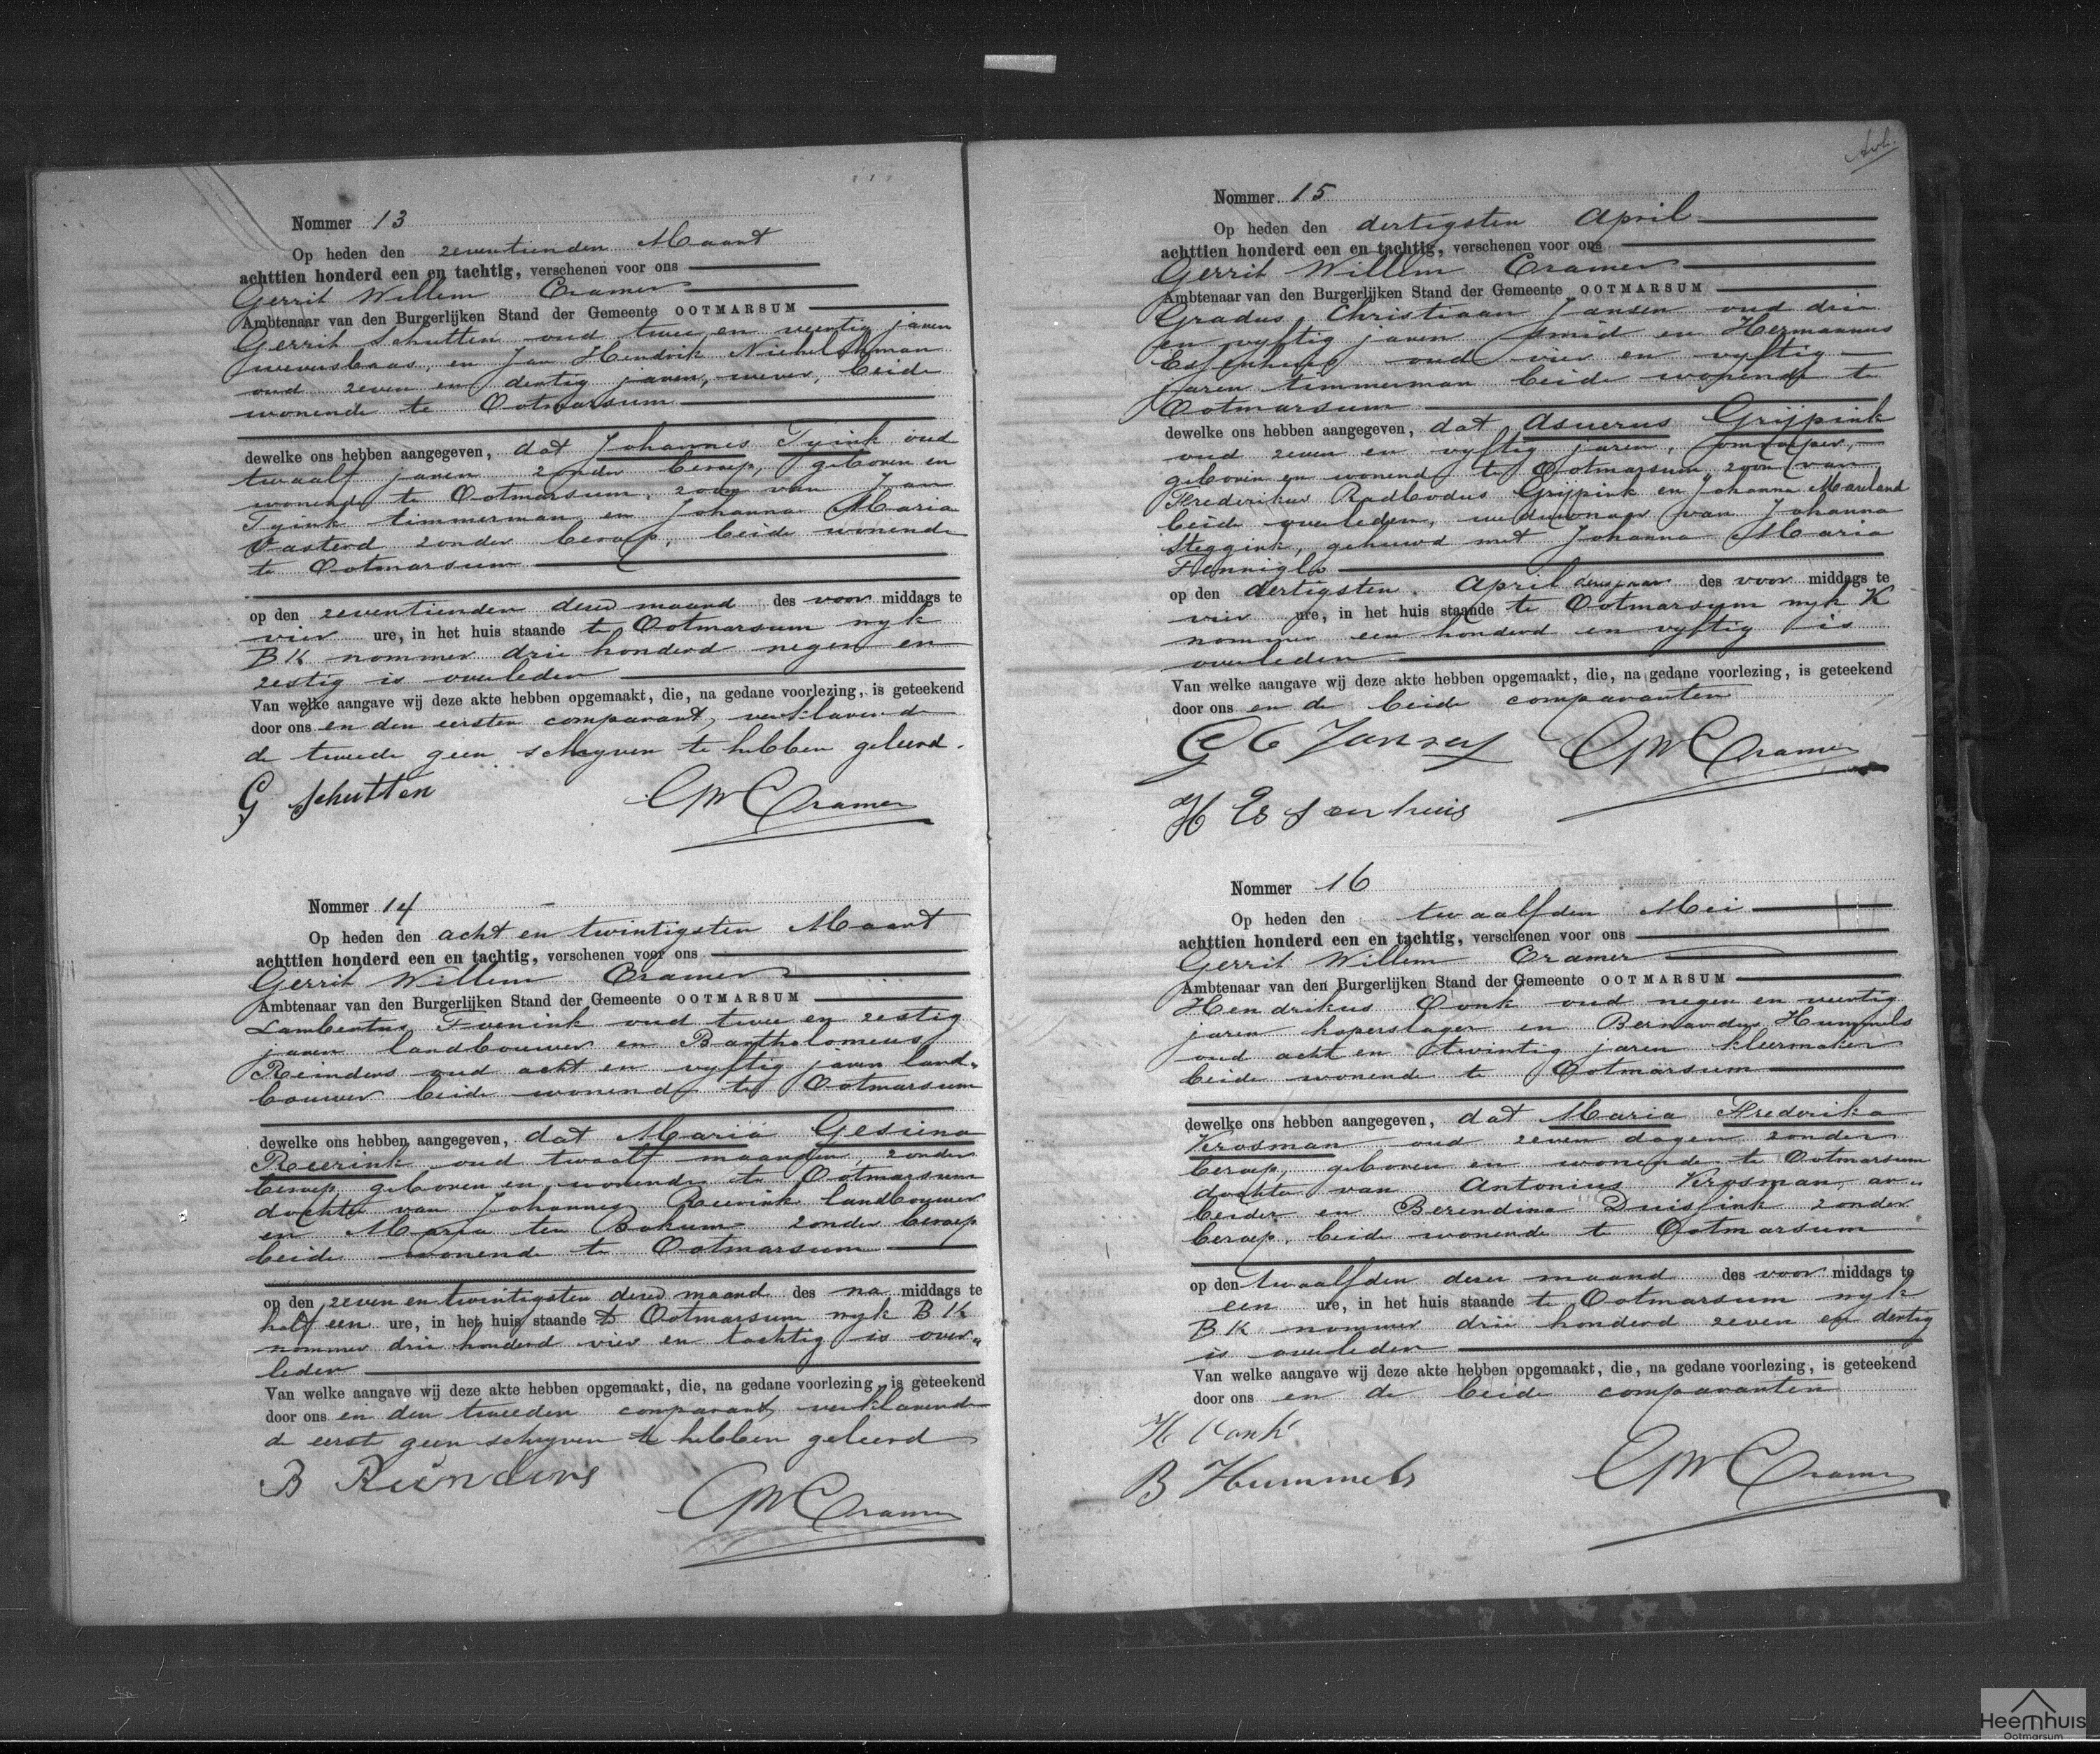 Nommer 13
Op heden den zeventienden Maart
achttien honderd een en tachtig, verschenen voor ons
Gerrit Willem Cramer
Ambtenaar van den Burgerlijken Stand der Gemeente OOTMARSUM
Gerrit Schutten oud twee en veertig jaren
weversbaas, en Jan Hendrik
oud zeven en dertig jaren, wever, beide
wonende te Ootmarsum
dewelke ons hebben aangegeven, dat Johannes Tyink oud
twaalf jaren zonder beroep, geboren en
wonende te Ootmarsum, zoon van Jan
Tyink timmerman en Johanna Maria
Vasterd zonder beroep, beide wonende
te Ootmarsum
op den zeventienden dezer maand des voor middags te
vier ure, in het huis staande te Ootmarsum wyk
BK nommer drie honderd negen en
zestig is overleden
Van welke aangave wij deze akte hebben opgemaakt, die, na gedane voorlezing, is geteekend
door ons en den eersten comparant, verklarende
de tweede geen schryven te hebben geleerd.
G Schutten GWCramer
Nommer 14
Op heden den acht en twintigsten Maart
achttien honderd een en tachtig, verschenen voor ons
Gerrit Willem Cramer
Ambtenaar van den Burgerlijken Stand der Gemeente OOTMARSUM
Lambertus oud twee en zestig
jaren landbouwer en Bartholomeus
Reinders oud acht en vyftig jaren land„
bouwer beide wonende te Ootmarsum
dewelke ons hebben aangegeven, dat Maria Gesiena
Reerink oud twaalf maanden, zonder
beroep, geboren en wonende te Ootmarsum
dochter van Johannes Reerink landbouwer
en Maria ten Bokum zonder beroep
beide wonende te Ootmarsum
op den zeven en twintigsten dezer maand des na middags te
half een ure, in het huis staande te Ootmarsum wyk BK
nommer drie honderd vier en tachtig is over„
leden
Van welke aangave wij deze akte hebben opgemaakt, die, na gedane voorlezing, is geteekend
door ons en den tweeden comparant, verklarende
de eerste geen schryven te hebben geleerd
B Reinders GWCramer
Nommer 15
Op heden den dertigsten April
achttien honderd een en tachtig, verschenen voor ons
Gerrit Willem Cramer
Ambtenaar van den Burgerlijken Stand der Gemeente OOTMARSUM
Gradus Christiaan Jansen oud drie
en vyftig jaren smid en Hermannus
Essenhuis oud vier en vyftig
jaren timmerman beide wonende te
Ootmarsum
dewelke ons hebben aangegeven, dat Asuerus Grijpink
oud zeven en vyftig jaren, omroeper,
geboren en wonend te Ootmarsum, zoon van
Frederikus Radbodus Grijpink en Johanna Mareland
beide overleden, weduwnaar van Johanna
Steggink, gehuwd met Johanna Maria
Henniglo
op den dertigsten April dezes jaars des voor middags te
vier ure, in het huis staande te Ootmarsum wyk K
nommer een honderd en vyftig is
overleden
Van welke aangave wij deze akte hebben opgemaakt, die, na gedane voorlezing, is geteekend
door ons en de beide comparanten
G C Jansen GWCramer
H Essenhuis
Nommer 16
Op heden den twaalfden Mei
achttien honderd een en tachtig, verschenen voor ons
Gerrit Willem Cramer
Ambtenaar van den Burgerlijken Stand der Gemeente OOTMARSUM
Hendrikus Vonk oud negen en veertig
jaren koperslager en Bernardus Hummels
oud acht en twintig jaren kleermaker
beide wonende te Ootmarsum
dewelke ons hebben aangegeven, dat Maria Frederika
Krosman oud zeven dagen zonder
beroep, geboren en wonende te Ootmarsum
dochter van Antonius Krosman, ar„
beider en Berendina Duisjink zonder
beroep, beide wonende te Ootmarsum
op den twaalfden dezer maand des voor middags te
een ure, in het huis staande te Ootmarsum wyk
BK nommer drie honderd zeven en dertig
is overleden
Van welke aangave wij deze akte hebben opgemaakt, die, na gedane voorlezing, is geteekend
door ons en de beide comparanten
H Vonk
B Hummels GWCramer
Heemhuis
Ootmarsum